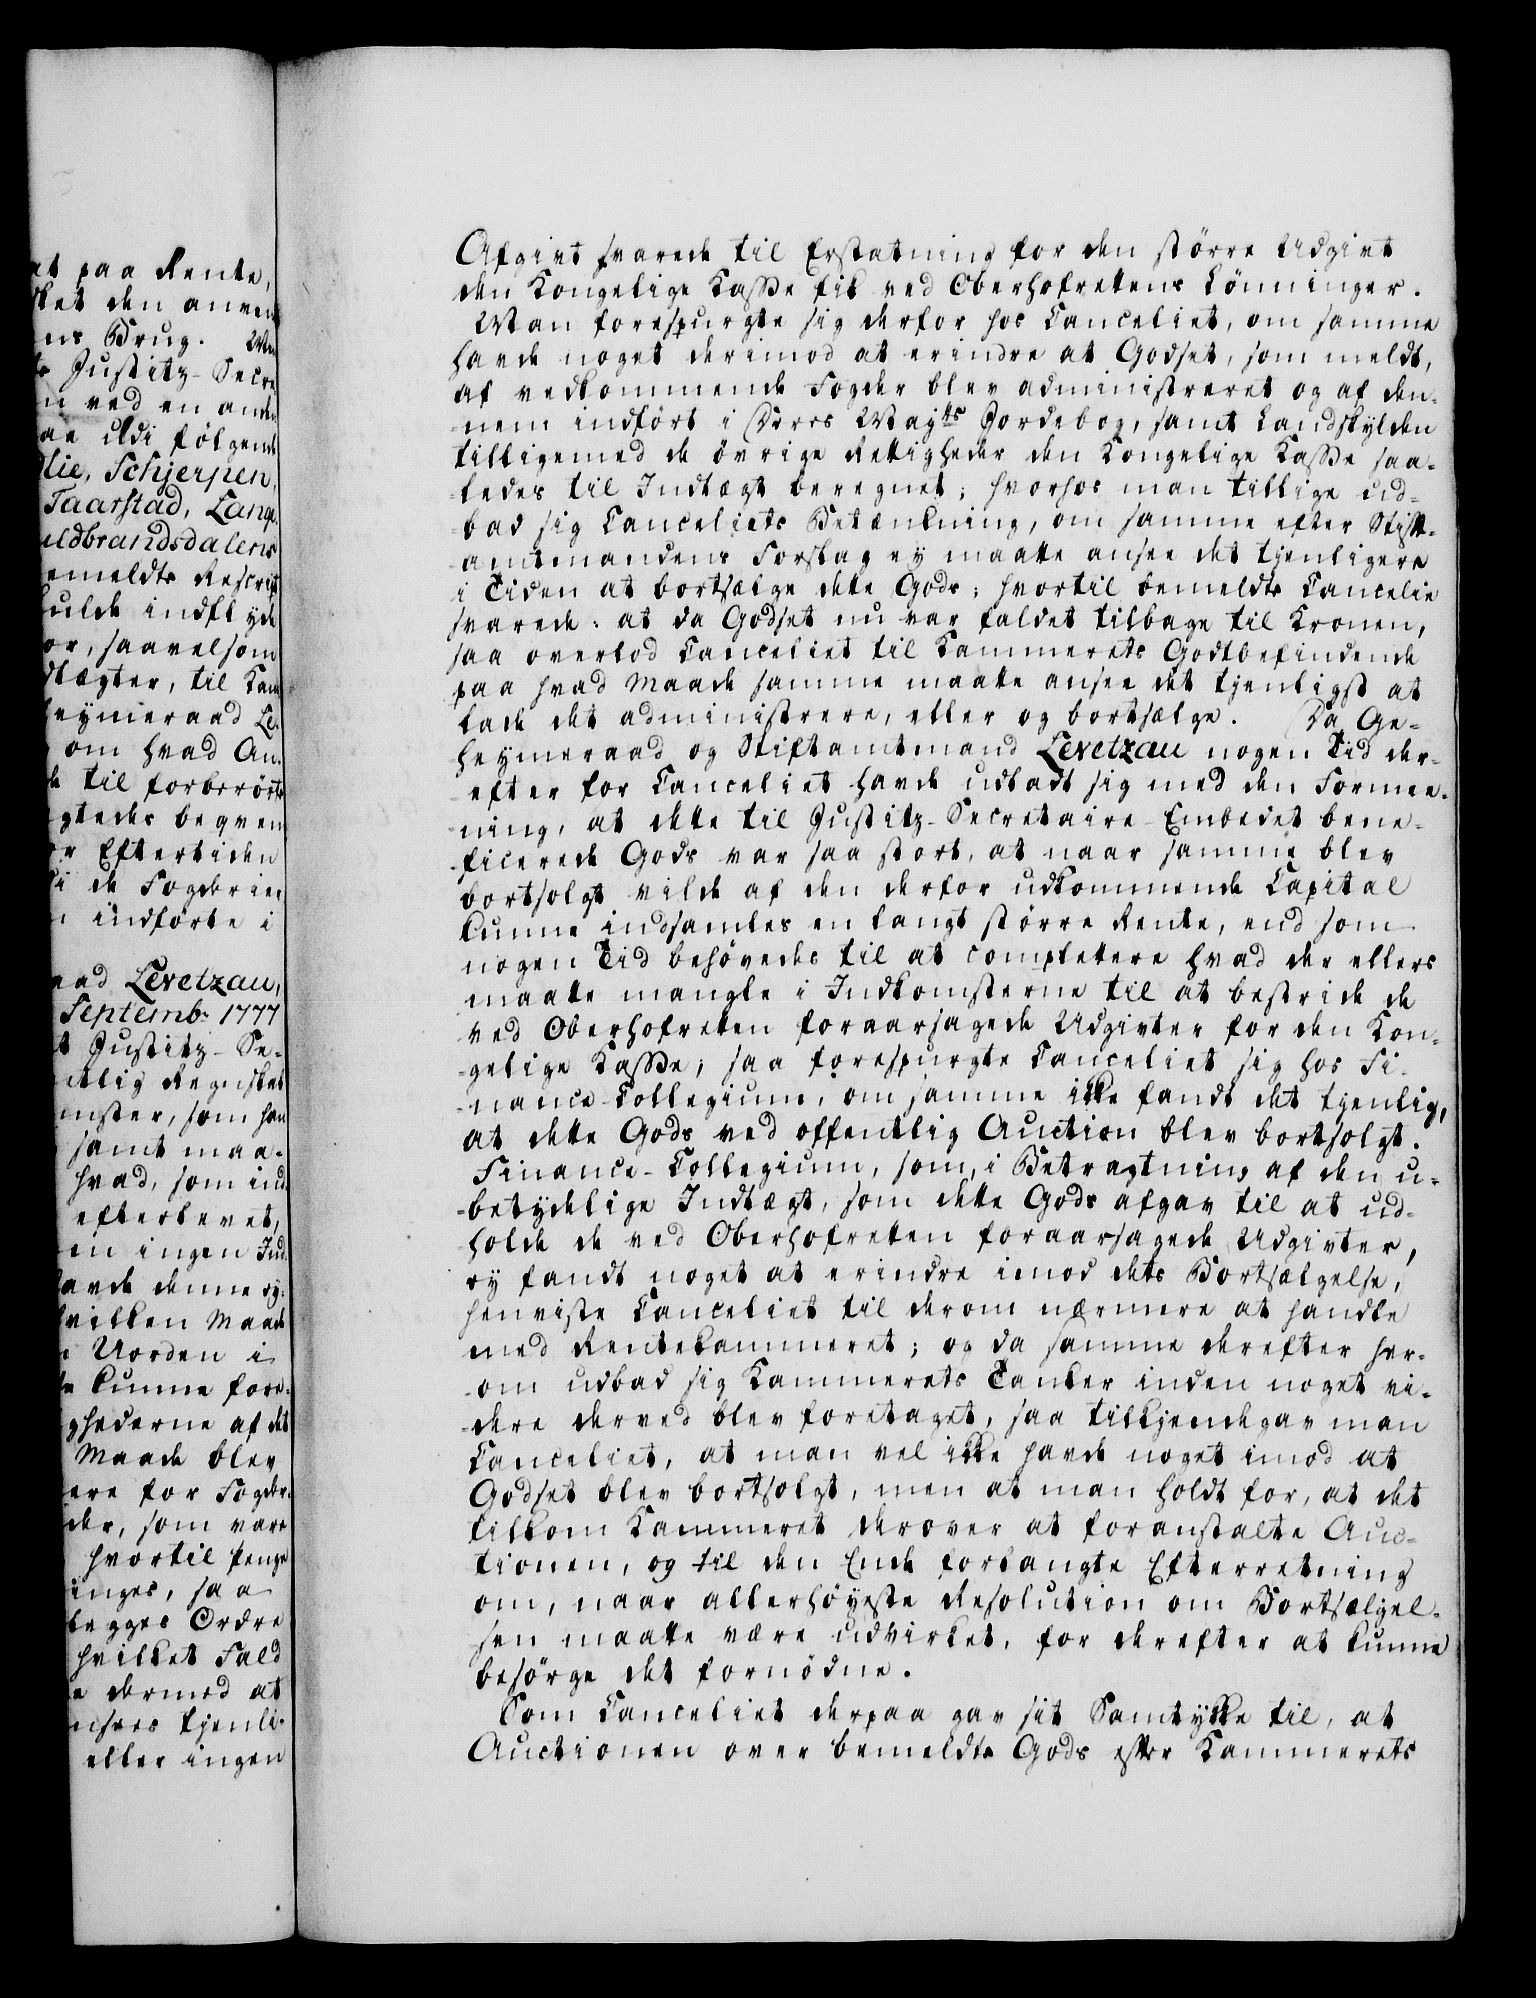 et paa Rente,
sket den anven
ns Brug. Man
Justitz-Secre
n ved en anden
aa Udi følgende
lie, Schjerpen,
Taarstad, Lange
uldbrandsdalens
emeldte Rescript
ulde indflyde
or, saavelsom
dtægter, til Kam
heymeraad Le-
om hvad An-
de til forberørte
gtedes beqvem
r Eftertiden
i de Fogderier
indførte i
aad Levetzau,
Septembr 1777
t Justitz-Se-
ntlig Regnskab
mster, som han
samt maa-
hvad, som ind-
efterlevet,
en ingen Ind-
avde denne ey-
hvilken Maade
Uorden i
kunne fore-
ghederne af det
Maade blev
ere for Fogder-
der, som vare
hvortil penge
inges, saa
legges Ordre
hvilket Fald
e dermed at
nsees tjenli-
eller ingen
Afgivt svarede til Erstatning for den större Udgivt
den Kongelige Kasse fik ved Oberhofrettens Lönninger.
Man forespurgte sig derfor hos Canceliet, om samme
havde noget derimod at erindre at Godset, som meldt,
af vedkommende Fogder blev administreret og af den-
nem indført i Deres Mayts Jordebog, samt Landskylden
tilligemed de övrige Rettigheder den Kongelige Kasse saa-
ledes til Indtægt beregnet; hvorhos man tillige ud-
bad sig Canceliets Betænkning, om samme efter Stift-
amtmandens Forslag ey maatte ansee det tjenligere
i Tiden at bortsælge dette Gods; hvortil bemeldte Cancelie
svarede: at da Godset nu var faldet tilbage til Kronen,
saa overlod Canceliet til Kammerets Godtbefindende
paa hvad Maade samme maatte ansee det tjenligst at
lade det administrere, eller og bortsælge. Da Ge-
heymeraad og Stiftamtmand Levetzau nogen Tid der-
efter for Canceliet havde udladt sig med den Formee-
ning, at dette til Justitz-Secretaire-Embedet bene-
ficerede Gods var saa stort, at naar samme blev
bortsolgt vilde af den derfor udkommende Capital
kunne indsamles en langt större Rente, end som
nogen Tid behövedes til at complettere hvad der ellers
maatte mangle i Indkomsterne til at bestride de
ved Oberhofretten foraarsagede Udgivter for den Kon-
gelige Kasse; saa forespurgte Canceliet sig hos Fi-
nance-Collegium, om samme ikke fandt det tjenlig,
at dette Gods ved offentlig Auction blev bortsolgt.
Finance-Collegium, som, i Betragtning af den u-
betydelige Indtægt, som dette Gods afgav til at ud-
holde de ved Oberhofretten foraarsagede Udgivter,
ey fandt noget at erindre imod dets Bortsælgelse,
henviste Canceliet til derom nærmere at handle
med Rentekammeret; og da samme derefter her-
om udbad sig Kammerets Tanker inden noget vi-
dere derved blev foretaget, saa tilkjendegav man
Canceliet, at man vel ikke havde noget imod at
Godset blev bortsolgt, men at man holdt for, at det
tilkom Kammeret derover at foranstalte Auc-
tionen, og til den Ende forlangte Efterretning
om, naar allerhöyeste Resolution om Bortsælgel-
sen maatte være udvirket, for derefter at kunne
besörge det fornödne.
Som Canceliet derpaa gav sit Samtykke til, at
Auctionen over bemeldte Gods efter Kammerets